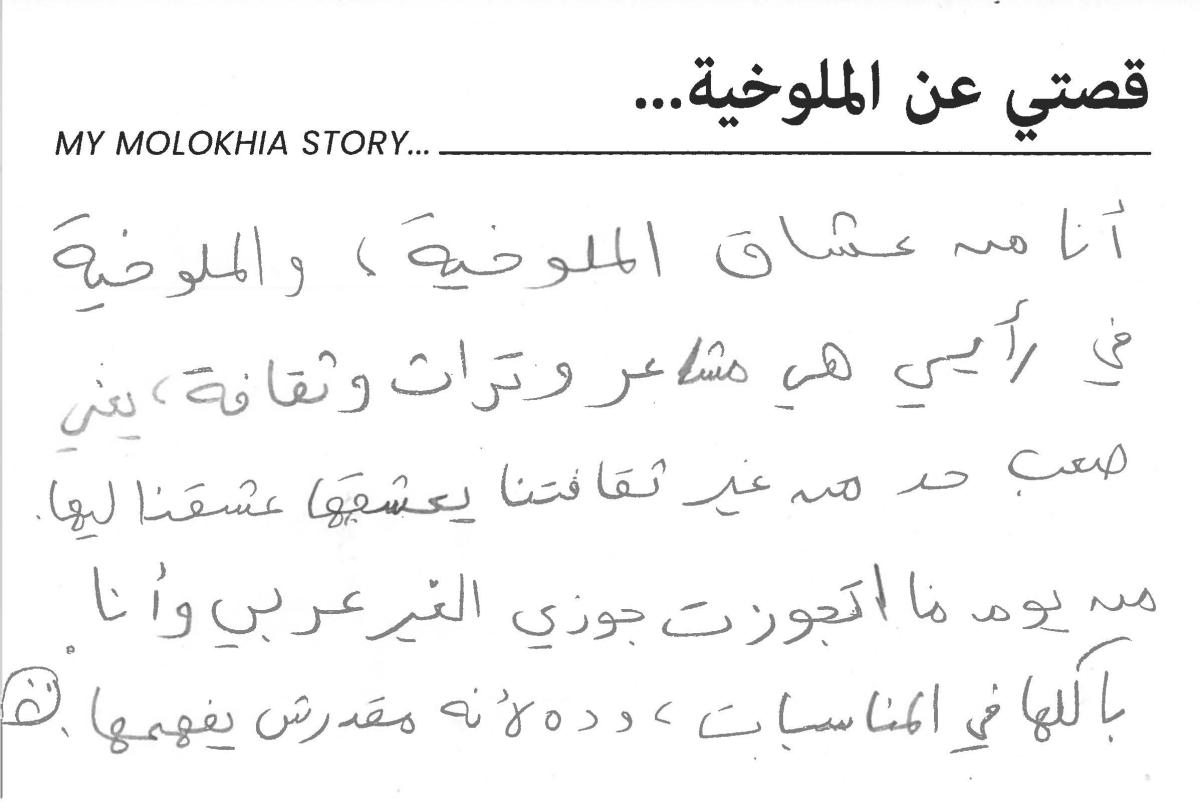 قصتي عن الملوخية...
MY MOLOKHIA STORY...
أنا من عشاق الملوخية، والملوخية
في رأيي هي مشاعر وتراث وثقافة، يعني
صعب حد من غير ثقافتنا يعشقها عشقنا ليها.
من يوم ما اتجوزت جوزي الغير عربي وأنا
باكلها في المناسبات، وده لأنه مقدرش يفهمها.